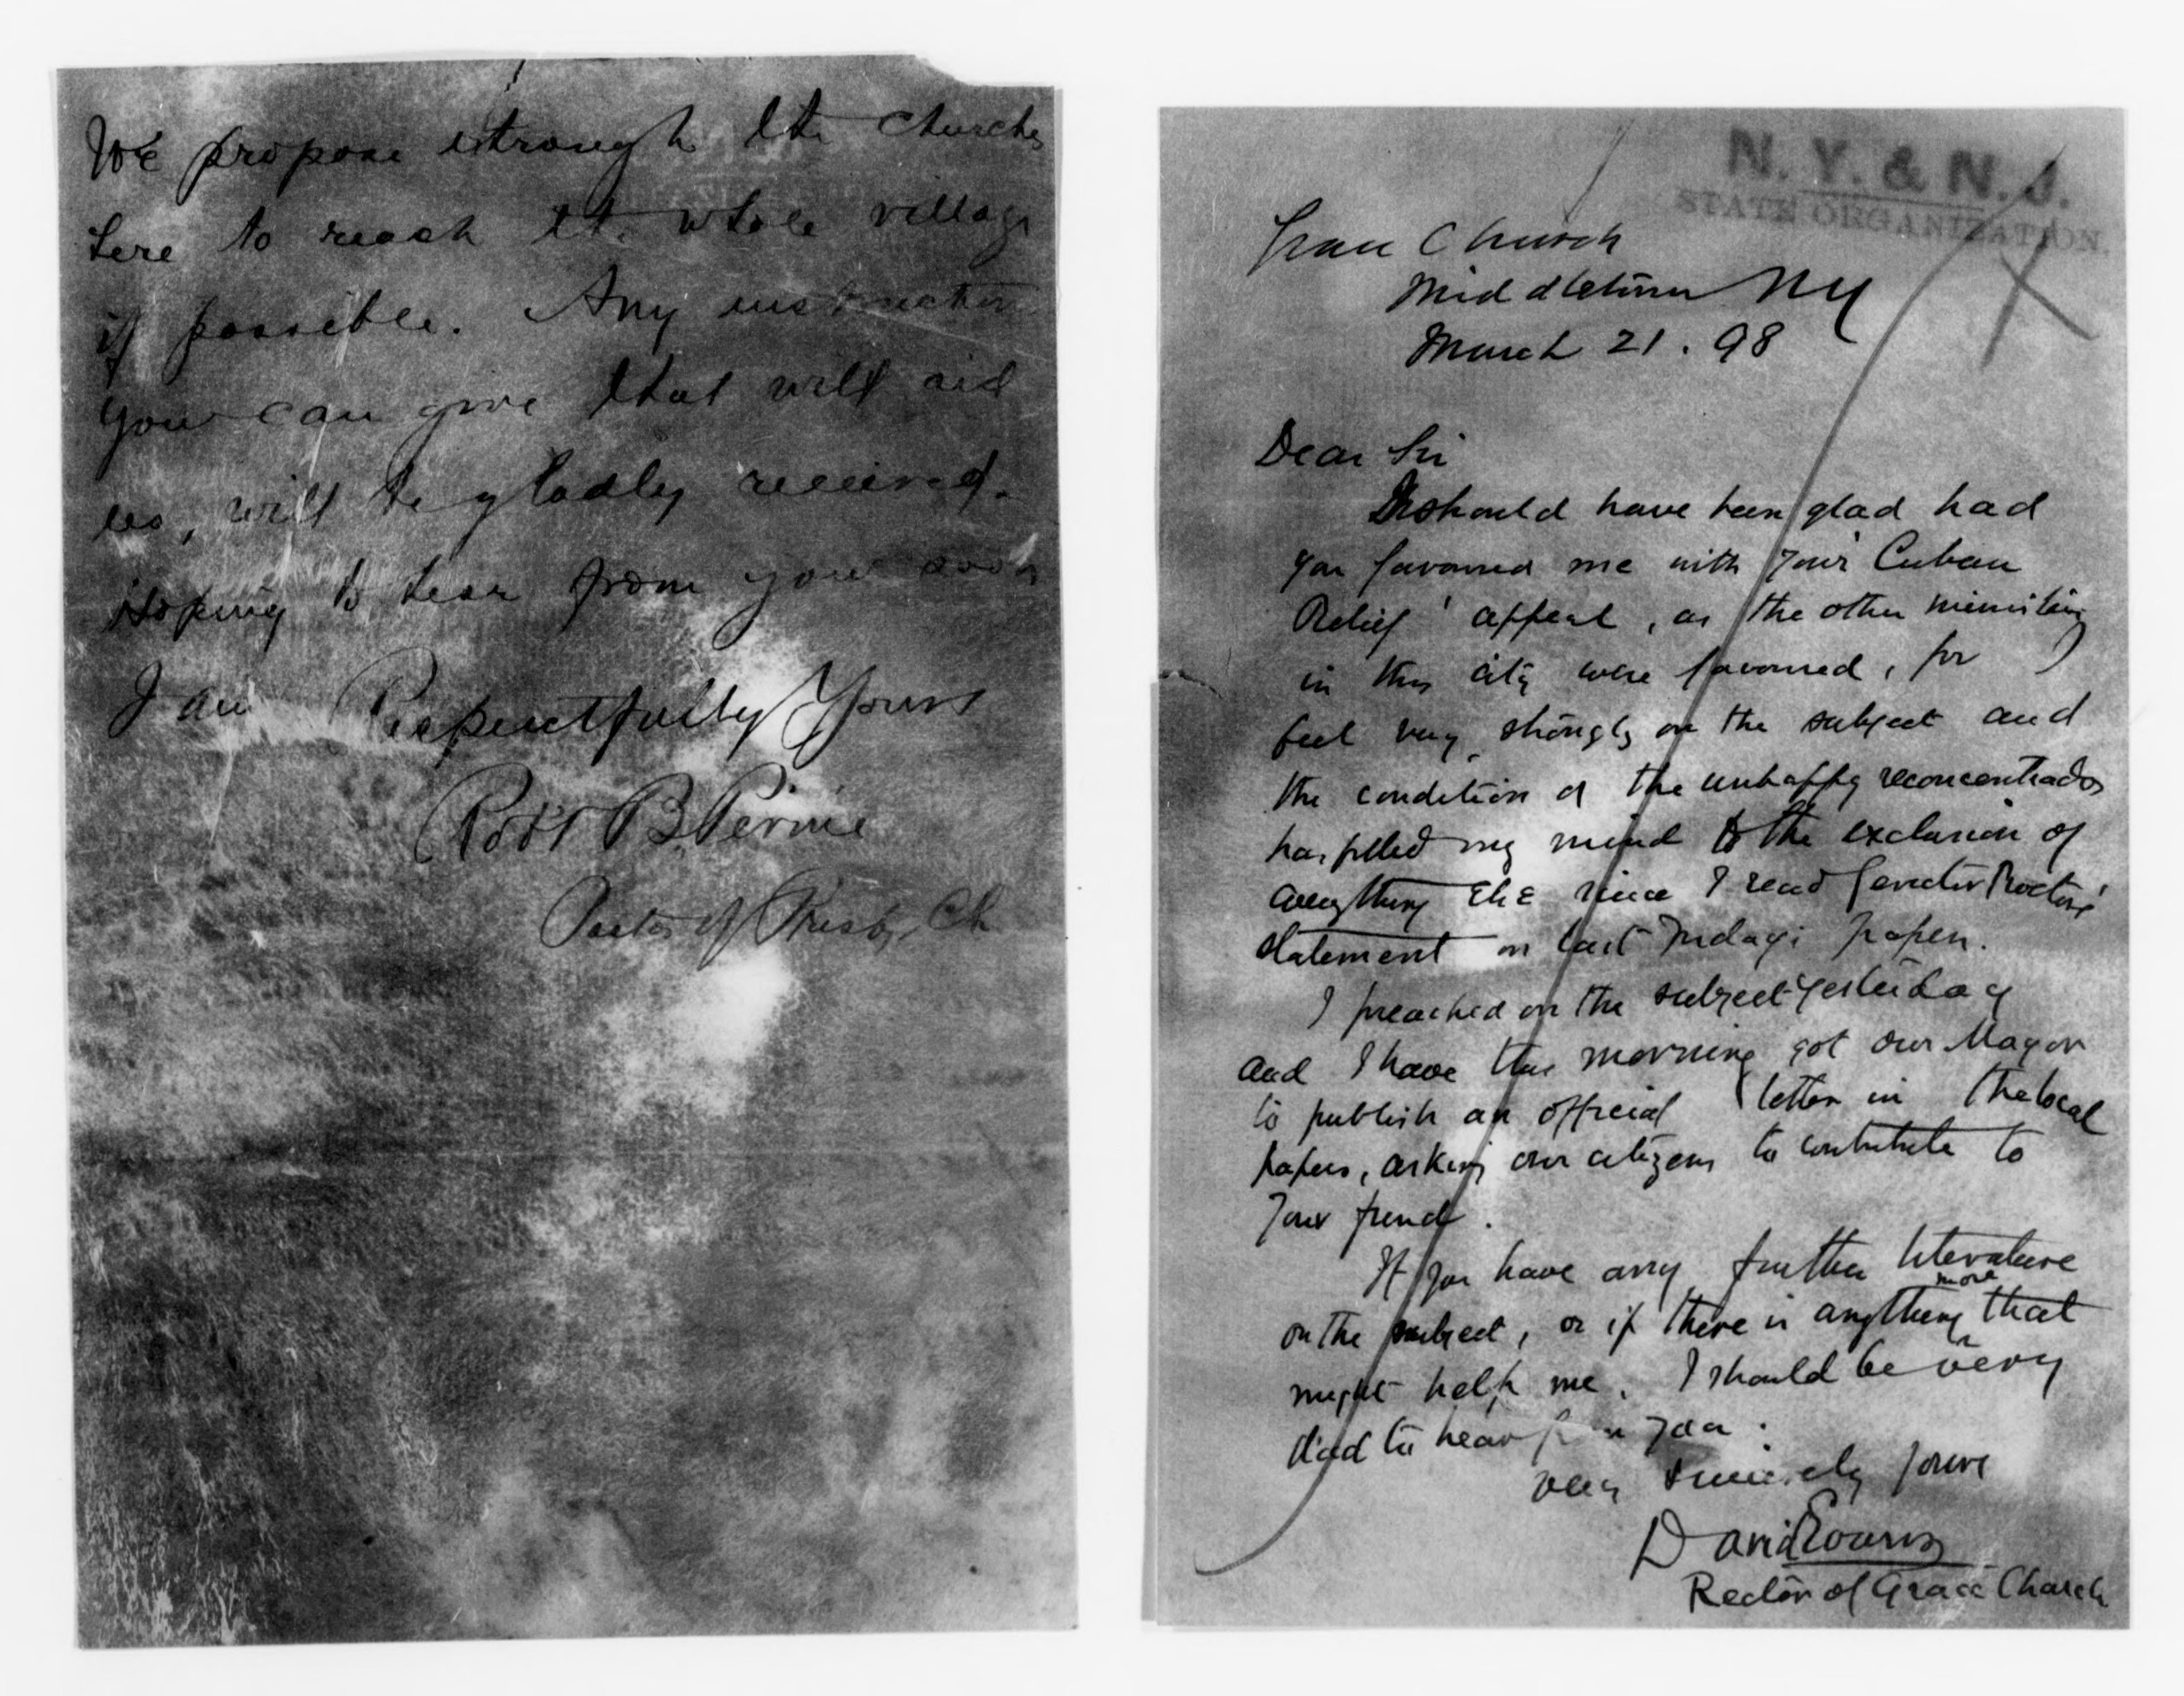 We propose through the churches
here to reach the whole village
if possible. Any instruction
you can give that will aid
us, will be gladly received.
Hoping to hear from you soon
I am Respectfully Yours
Robt B. Perine
Pastor of Presby. Ch.
N. Y. & N. J.
STATE ORGANIZATION.
Grace Church
Middletown NY
March 21. 98
Dear Sir
I should have been glad had
you favoured me with your Cuban
Relief appeal, as the other ministers
in this city were favoured, for I
feel very strongly on the subject and
the condition of the unhappy reconcentrados
has filled my mind to the exclusion of
everything else since I read Senator Proctors'
statement in last Fridays papers.
I preached on the subject yesterday
and I have this morning got our Mayor
to publish an official letter in the local
papers, asking our citizens to contribute to
your fund.
If you have any further literature
on the subject, or if there is anything more that
might help me, I should be very
glad to hear from you.
Very sincerely yours
David Evans
Rector of Grace Church